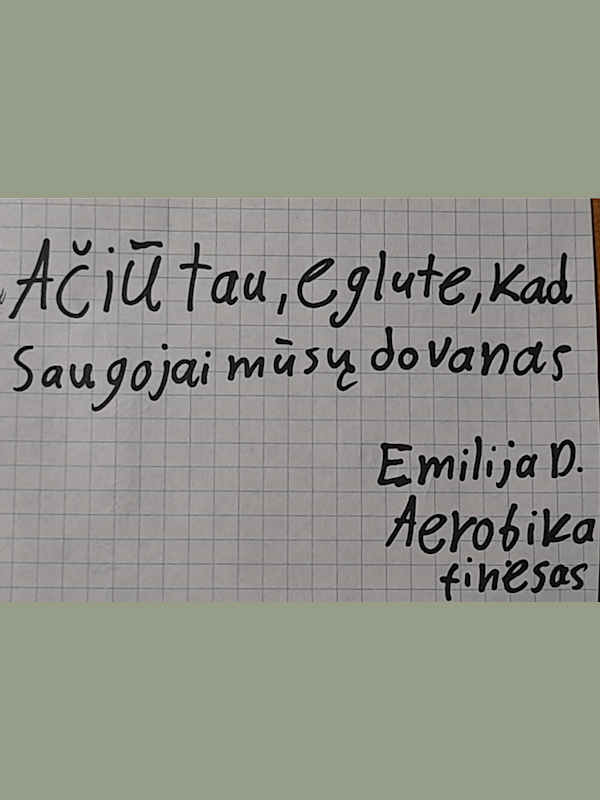 Ačiū tau, eglute, kad
Saugojai mūsų dovanas
Emilija D.
Aerobika
finesas